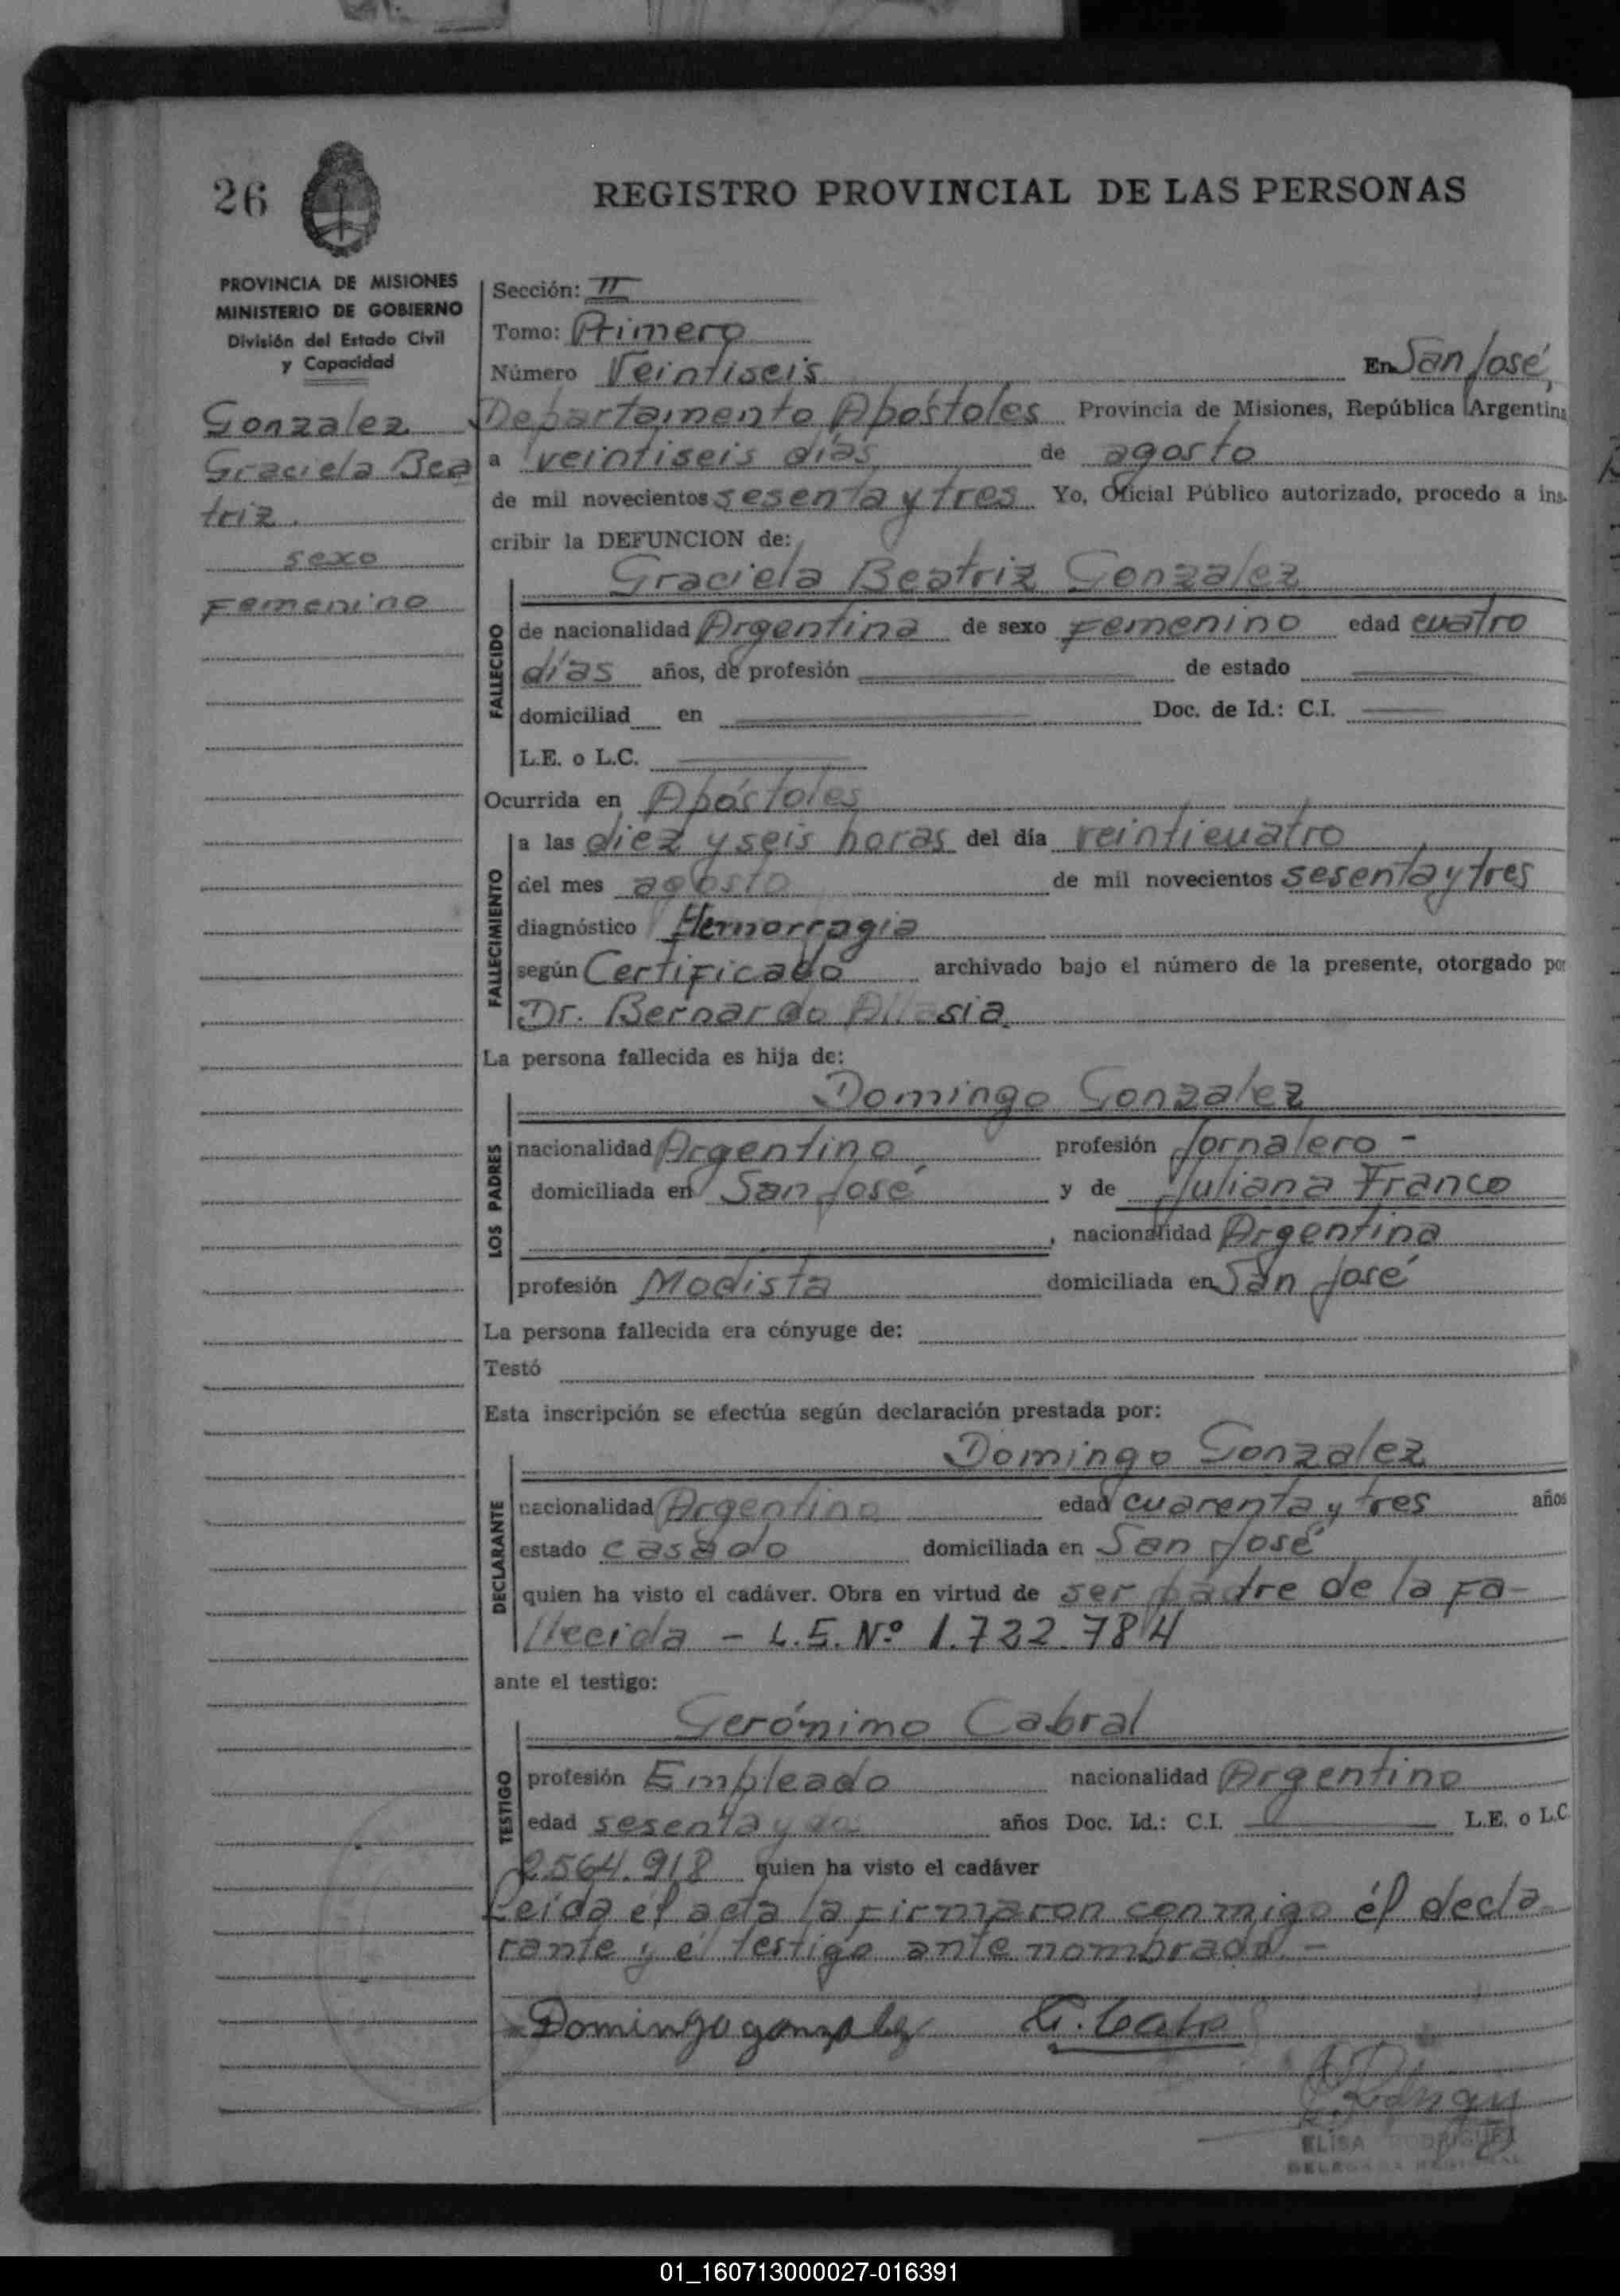 26
REGISTRO PROVINCIAL DE LAS PERSONAS
PROVINCIA DE MISIONES
MINISTERIO DE GOBIERNO
División del Estado Civil
y Capacidad
Gonzalez
Graciela Bea
triz.
sexo
Femenino
Sección: II
Tomo: Primero
Número Veintiseis En San José,
Departamento Apóstoles Provincia de Misiones, República Argentina
a veintiseis días de agosto
de mil novecientos sesenta y tres Yo, Oficial Público autorizado, procedo a ins-
cribir la DEFUNCION de:
Graciela Beatriz Gonzalez
FALLECIDO
de nacionalidad Argentina de sexo Femenino edad cuatro
días años, de profesión de estado
domiciliad en Doc. de Id.: C.I.
L.E. o L.C.
Ocurrida en Apóstoles
FALLECIMIENTO
a las diez y seis horas del día veinticuatro
del mes agosto de mil novecientos sesenta y tres
diagnóstico Hemorragia
según Certificado archivado bajo el número de la presente, otorgado por
Dr. Bernardo Allasia.
La persona fallecida es hija de:
Domingo Gonzalez
LOS PADRES
nacionalidad Argentino profesión Jornalero -
domiciliada en San José y de Juliana Franco
, nacionalidad Argentina
profesión Modista domiciliada en San José
La persona fallecida era cónyuge de:
Testó
Esta inscripción se efectúa según declaración prestada por:
Domingo Gonzalez
DECLARANTE
nacionalidad Argentino edad cuarenta y tres años
estado casado domiciliada en San José
quien ha visto el cadáver. Obra en virtud de ser padre de la fa-
llecida - L.E. Nº 1.722.784
ante el testigo:
Gerónimo Cabral
TESTIGO
profesión Empleado nacionalidad Argentino
edad sesenta y dos años Doc. Id.: C.I. L.E. o L.C.
2564.918 quien ha visto el cadáver
Leída el acta la firmaron conmigo él decla-
rante y el testigo ante nombrado. -
Domingo gonzalez G. Cabr
ELISA RODRIGUEZ
01_160713000027-016391